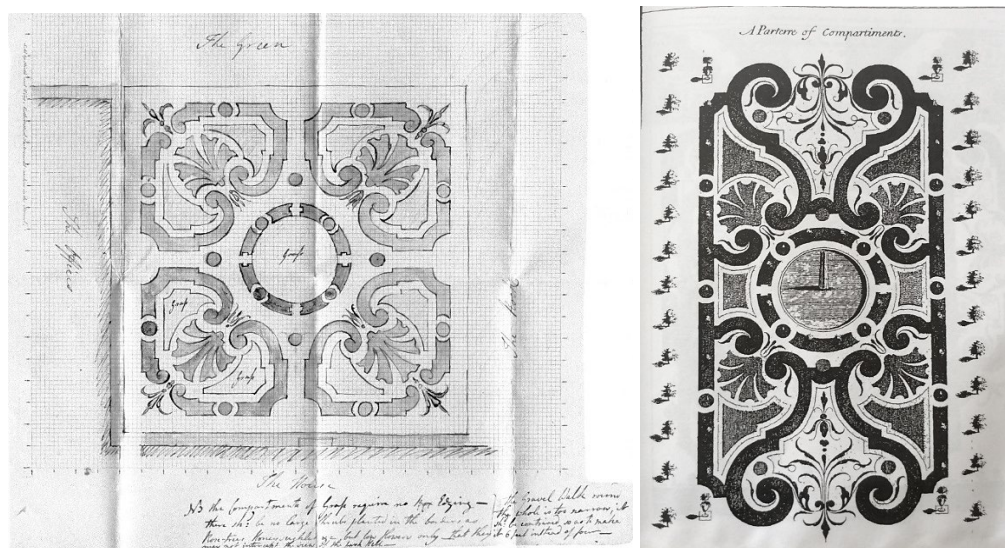 The Green
The Offices
Grass
Grass
Grass
The House
NB the Compartments of Grass require no Box Edging —
there sh: be no large Shrubs planted in the borders as
Rose-trees Honeysuckles &c, but low flowers only that they
may not intercept the view of the
the Gravel Walk round
the whole is too narrow, it
sh: be
it 6 feet instead of four —
A Parterre of Compartiments.